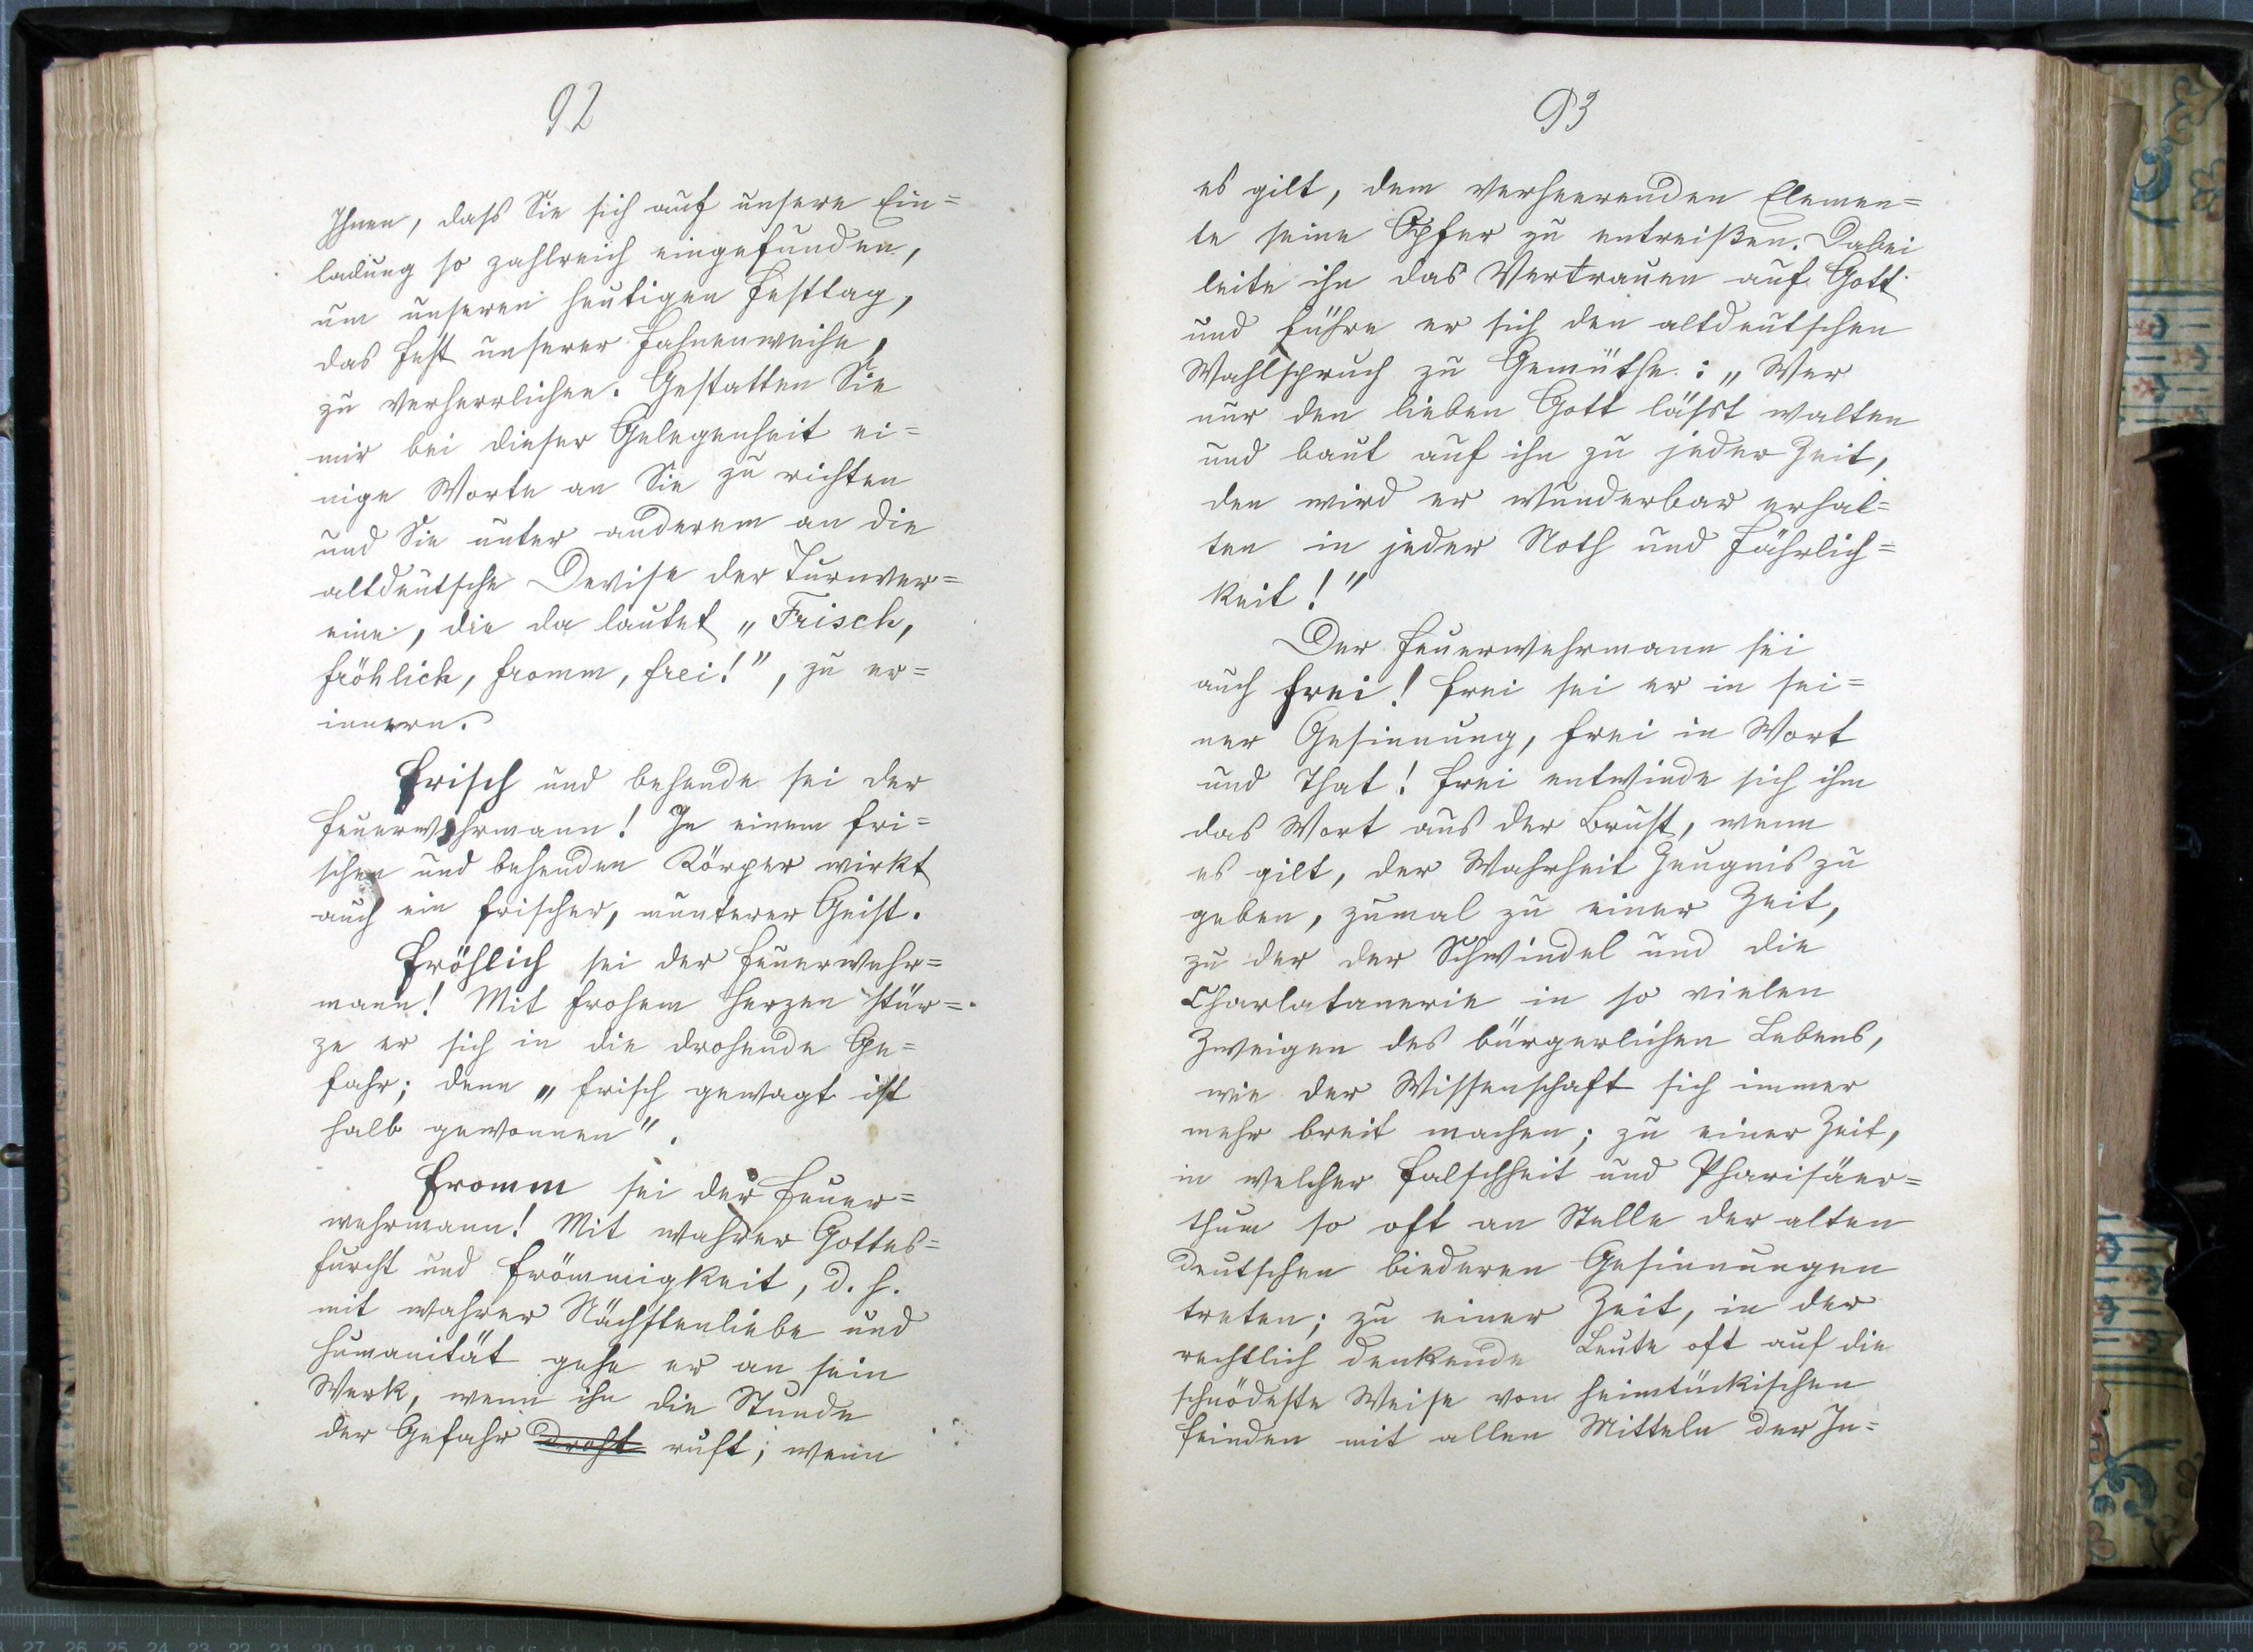 92
Ihnen, dass Sie sich auf unsere Ein=
ladung so zahlreich eingefunden,
um unseren heutigen Festtag,
das Fest unserer Fahnenweihe,
zu verherrlichen. Gestatten Sie
mir bei dieser Gelegenheit ei=
nige Worte an Sie zu richten
und Sie unter anderem an die
altdeutsche Devise der Turnver=
eine, die da lautet „Frisch,
fröhlich, fromm, frei!", zu er=
innern.
Frisch und behende sei der
Feuerwehrmann! In einem fri=
schen und behenden Körper wirkt
auch ein frischer, munterer Geist.
Fröhlich sei der Feuerwehr=
mann! Mit frohem Herzen stür=
ze er sich in die drohende Ge=
fahr; denn „frisch gewagt ist
halb gewonnen".
Fromm sei der Feuer=
wehrmann! Mit wahrer Gottes=
furcht und Frömmigkeit, d. h.
mit wahrer Nächstenliebe und
Humanität gehe er an sein
Werk, wenn ihn die Stunde
der Gefahr droht ruft; wenn
93
es gilt, dem verheerenden Elemen=
te seine Opfer zu entreißen. Dabei
leite ihn das Vertrauen auf Gott
und führe er sich den altdeutschen
Wahlspruch zu Gemüthe: „Wer
nur den lieben Gott lässt walten
und baut auf ihn zu jeder Zeit,
den wird er wunderbar erhal=
ten in jeder Noth und Fährlich=
keit!"
Der Feuerwehrmann sei
auch frei! Frei sei er in sei=
ner Gesinnung, frei in Wort
und That! Frei entwinde sich ihm
das Wort aus der Brust, wenn
es gilt, der Wahrheit Zeugnis zu
geben, zumal zu einer Zeit,
zu der der Schwindel und die
Charlatanerie in so vielen
Zweigen des bürgerlichen Lebens,
wie der Wissenschaft sich immer
mehr breit machen; zu einer Zeit,
in welcher Falschheit und Pharisäer=
thum so oft an Stelle der alten
deutschen biederen Gesinnungen
treten; zu einer Zeit, in der
rechtlich denkende Leute oft auf die
schnödeste Weise von heimtückischen
Feinden mit allen Mitteln der In=